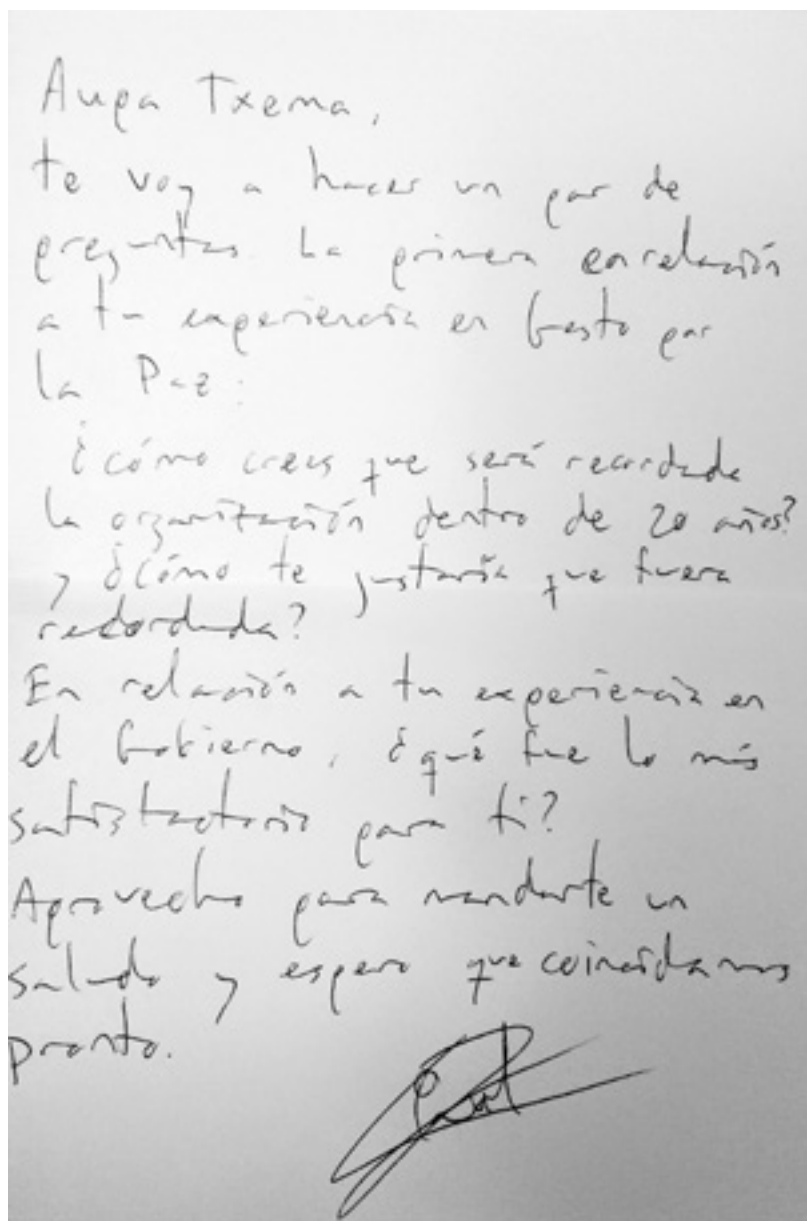 Aupa Txema,
te voy a hacer un par de
preguntas. La primera en relación
a tu experiencia en Gesto por
la Paz:
¿cómo crees que será recordada
la organización dentro de 20 años?
y ¿cómo te gustaría que fuera
recordada?
En relación a tu experiencia en
el Gobierno, ¿qué fue lo más
satisfactorio para ti?
Aprovecho para mandarte un
saludo y espero que coincidamos
pronto.